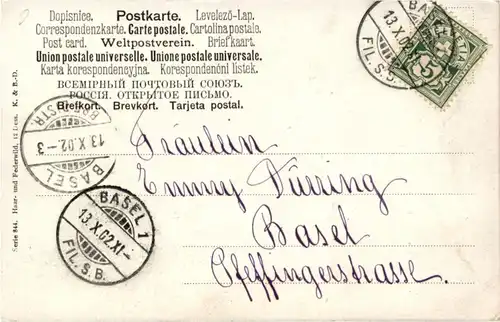 Dopisnice. Postkarte. Levelező-Lap.
Correspondenzkarte. Carte postale. Cartolina postale.
Post card. Weltpostverein. Briefkaart.
Union postale universelle. Unione postale universale.
Karta korespondencyjna. Korespondenční listek.
ВСЕМІРНЫЙ ПОЧТОВЫЙ СОЮЗЪ.
РОССІЯ. ОТКРЫТОЕ ПИСЬМО.
Brefkort. Brevkort. Tarjeta postal.
13 X 02
FIL. S. B.
5
13 X 02 - 3
BASEL
BASEL 1
13. X. 02. XI -
FIL. S. B.
Fräulein
Emmy Dürring
Basel
Pfeffingerstrasse.
Serie 844. Haar- und Federwild, 12 Dess. K. & B.-D.